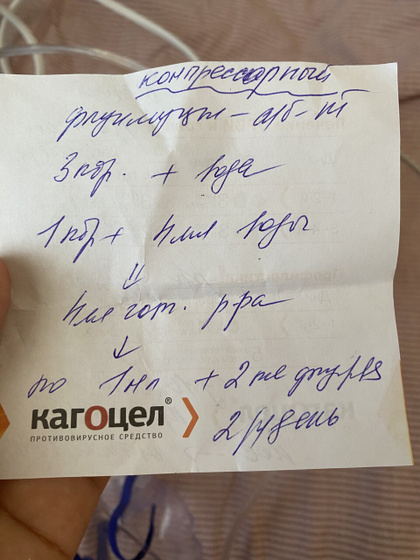 компрессорный
флуимуцил - а/б - ИТ
3 пор. + вода
1 пор + 4 мл воды
⇓
4 мл гот. р-ра
↓
по 1 мл + 2 мл физ/р-ра
кагоцел®
ПРОТИВОВИРУСНОЕ СРЕДСТВО
2 р/день